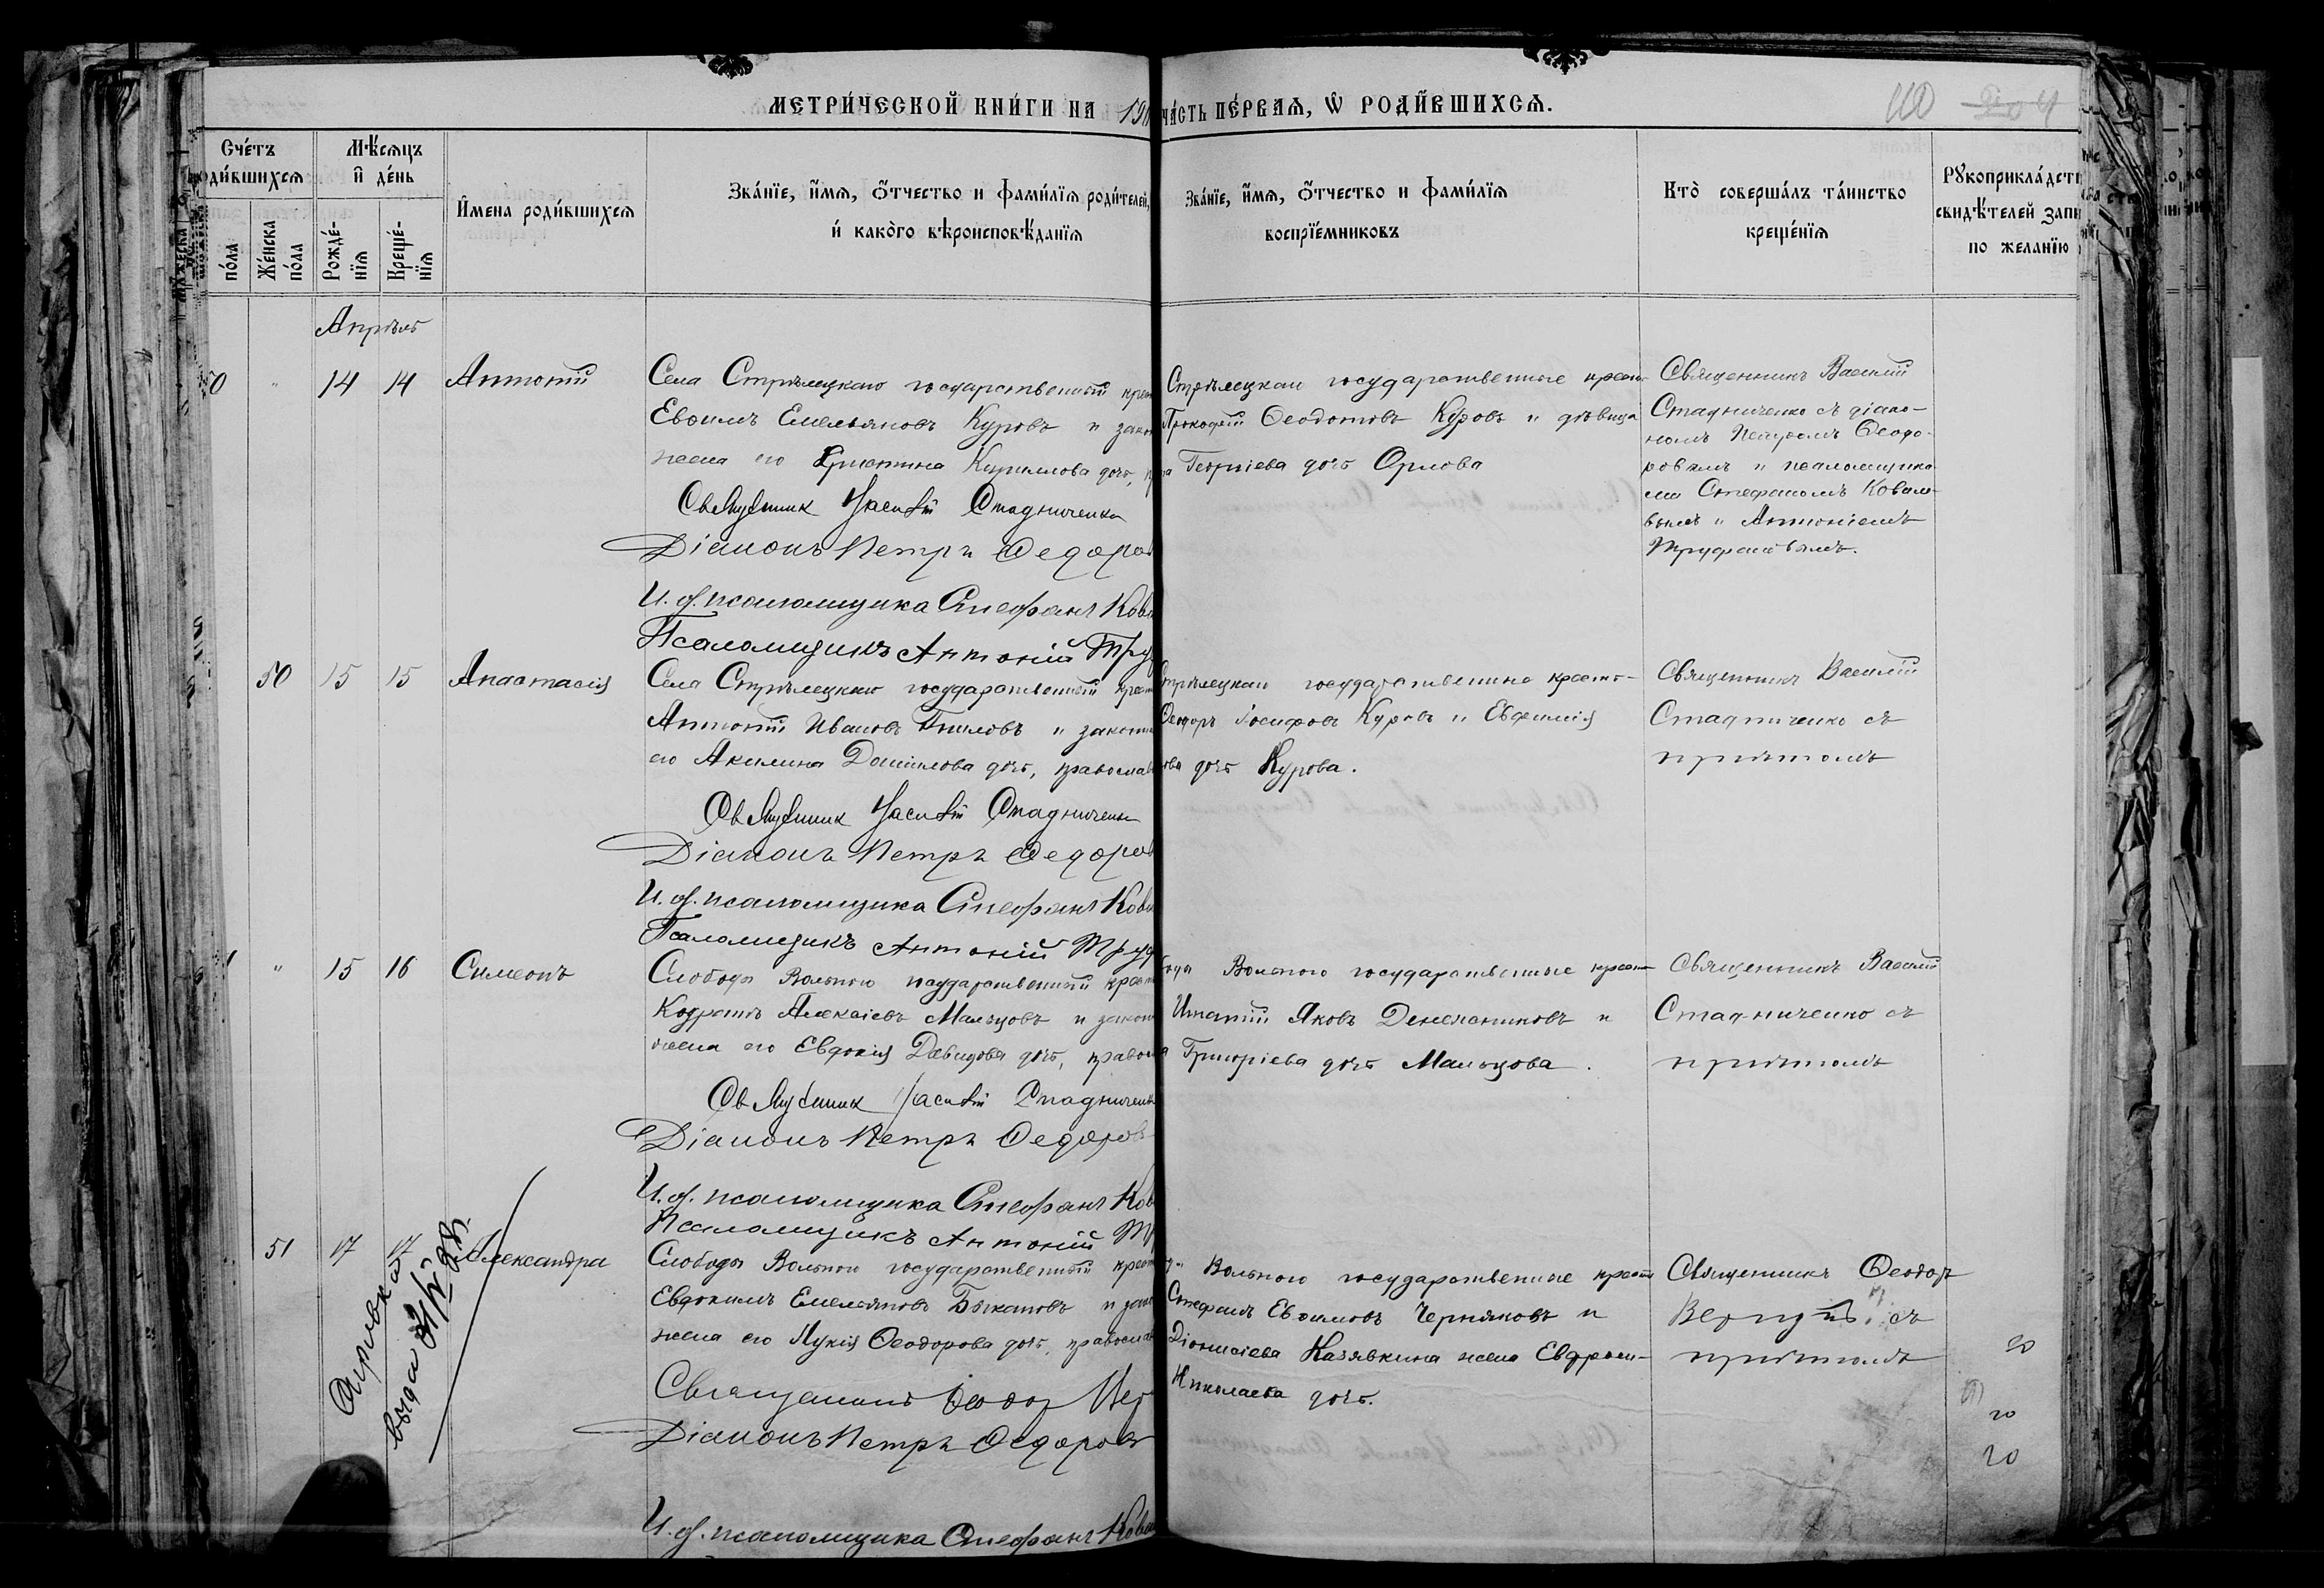 МЕТРИ́ЧЕСКОЙ КНИ́ГИ НА 19
ЧА́СТЬ ПЕ́РВАЯ, Ѡ РОДИ́ВШИХСЯ.
Сче́тъ родившихся
Мѣсяцъ и де́нь
по́ла
Же́нска по́ла
Рожде́-нїя
Креще́-нїя
Имена роди́вшихся
Зва́нїе, и́мя, ѻ́тчество и фами́лїя роди́телей,
и́ како́гѡ вѣроисповѣ́данїя
Зва́нїе, и́мя, ѻ́тчество и фами́лїя
воспрїе́мниковъ
Кто̀ соверша́лъ та́инство
креще́нїя
Рꙋкоприкла́дст
свидѣ́телей запи
по жела́нїю
Апрѣль
0 " 14 14 Антоній
Села Стрѣлецкаго государственный крест
Евѳимъ Емельяновъ Куровъ и закон
жена его Христина Кириллова дочь,
Священник Василій Стадниченко
Діаконъ Петръ Федоров
И. д. псаломщика Стефанъ Кова
Псаломщикъ Антоній Тру
Стрѣлецкаго государственные крест
Прокофій Ѳеодотовъ Куровъ и дѣвица
Георгіева дочь Орлова
Священникъ Василій
Стадниченко съ діако-
номъ Петромъ Ѳеодо-
ровымъ и псаломщика
ми Стефаномъ Ковале-
вымъ и Антоніемъ
Труфановымъ.
50 15 15 Анастасія
Села Стрѣлецкаго государственный крест
Антоній Ивановъ и законн
его Акилина Даніилова дочь, православ
Священник Василій Стадниченко
Діаконъ Петръ Федоров
И. д. псаломщика Стефанъ Кова
Псаломщикъ Антоній Труф
Стрѣлецкаго государственные кресть-
Ѳеодоръ Іосифовъ Куровъ и Евфимія
ова дочь Курова.
Священникъ Василій
Стадниченко съ
причтомъ
1 " 15 16 Симеонъ
Слободы Вольного государственный крест
Кодратъ Алексіевъ Мальцовъ и закон
жена его Евдокія Давидова дочь, правосл
Священник Василій Стадниченко
Діаконъ Петръ Федоровъ
И. д. псаломщика Стефанъ Ков
Псаломщикъ Антоній Т
Вольного государственные крест
Игнатій Яковъ Денежниковъ и
Григоріева дочь Мальцова.
Священникъ Василій
Стадниченко съ
причтомъ
51 17 17 Александра
Слободы Вольного государственный крест
Евдокимъ Емельяновъ Быкановъ и зак
жена его Лукія Ѳеодорова дочь, православ
Священникъ Ѳеодор Вер
Діаконъ Петръ Федоровъ
И. д. псаломщика Стефанъ Кова
Вольного государственные крест
Стефанъ Евѳимовъ Черняковъ и
Діонисіева Казявкина жена Евфроси-
Николаева дочь.
Священникъ Ѳеодоръ
съ
причтомъ
20
20